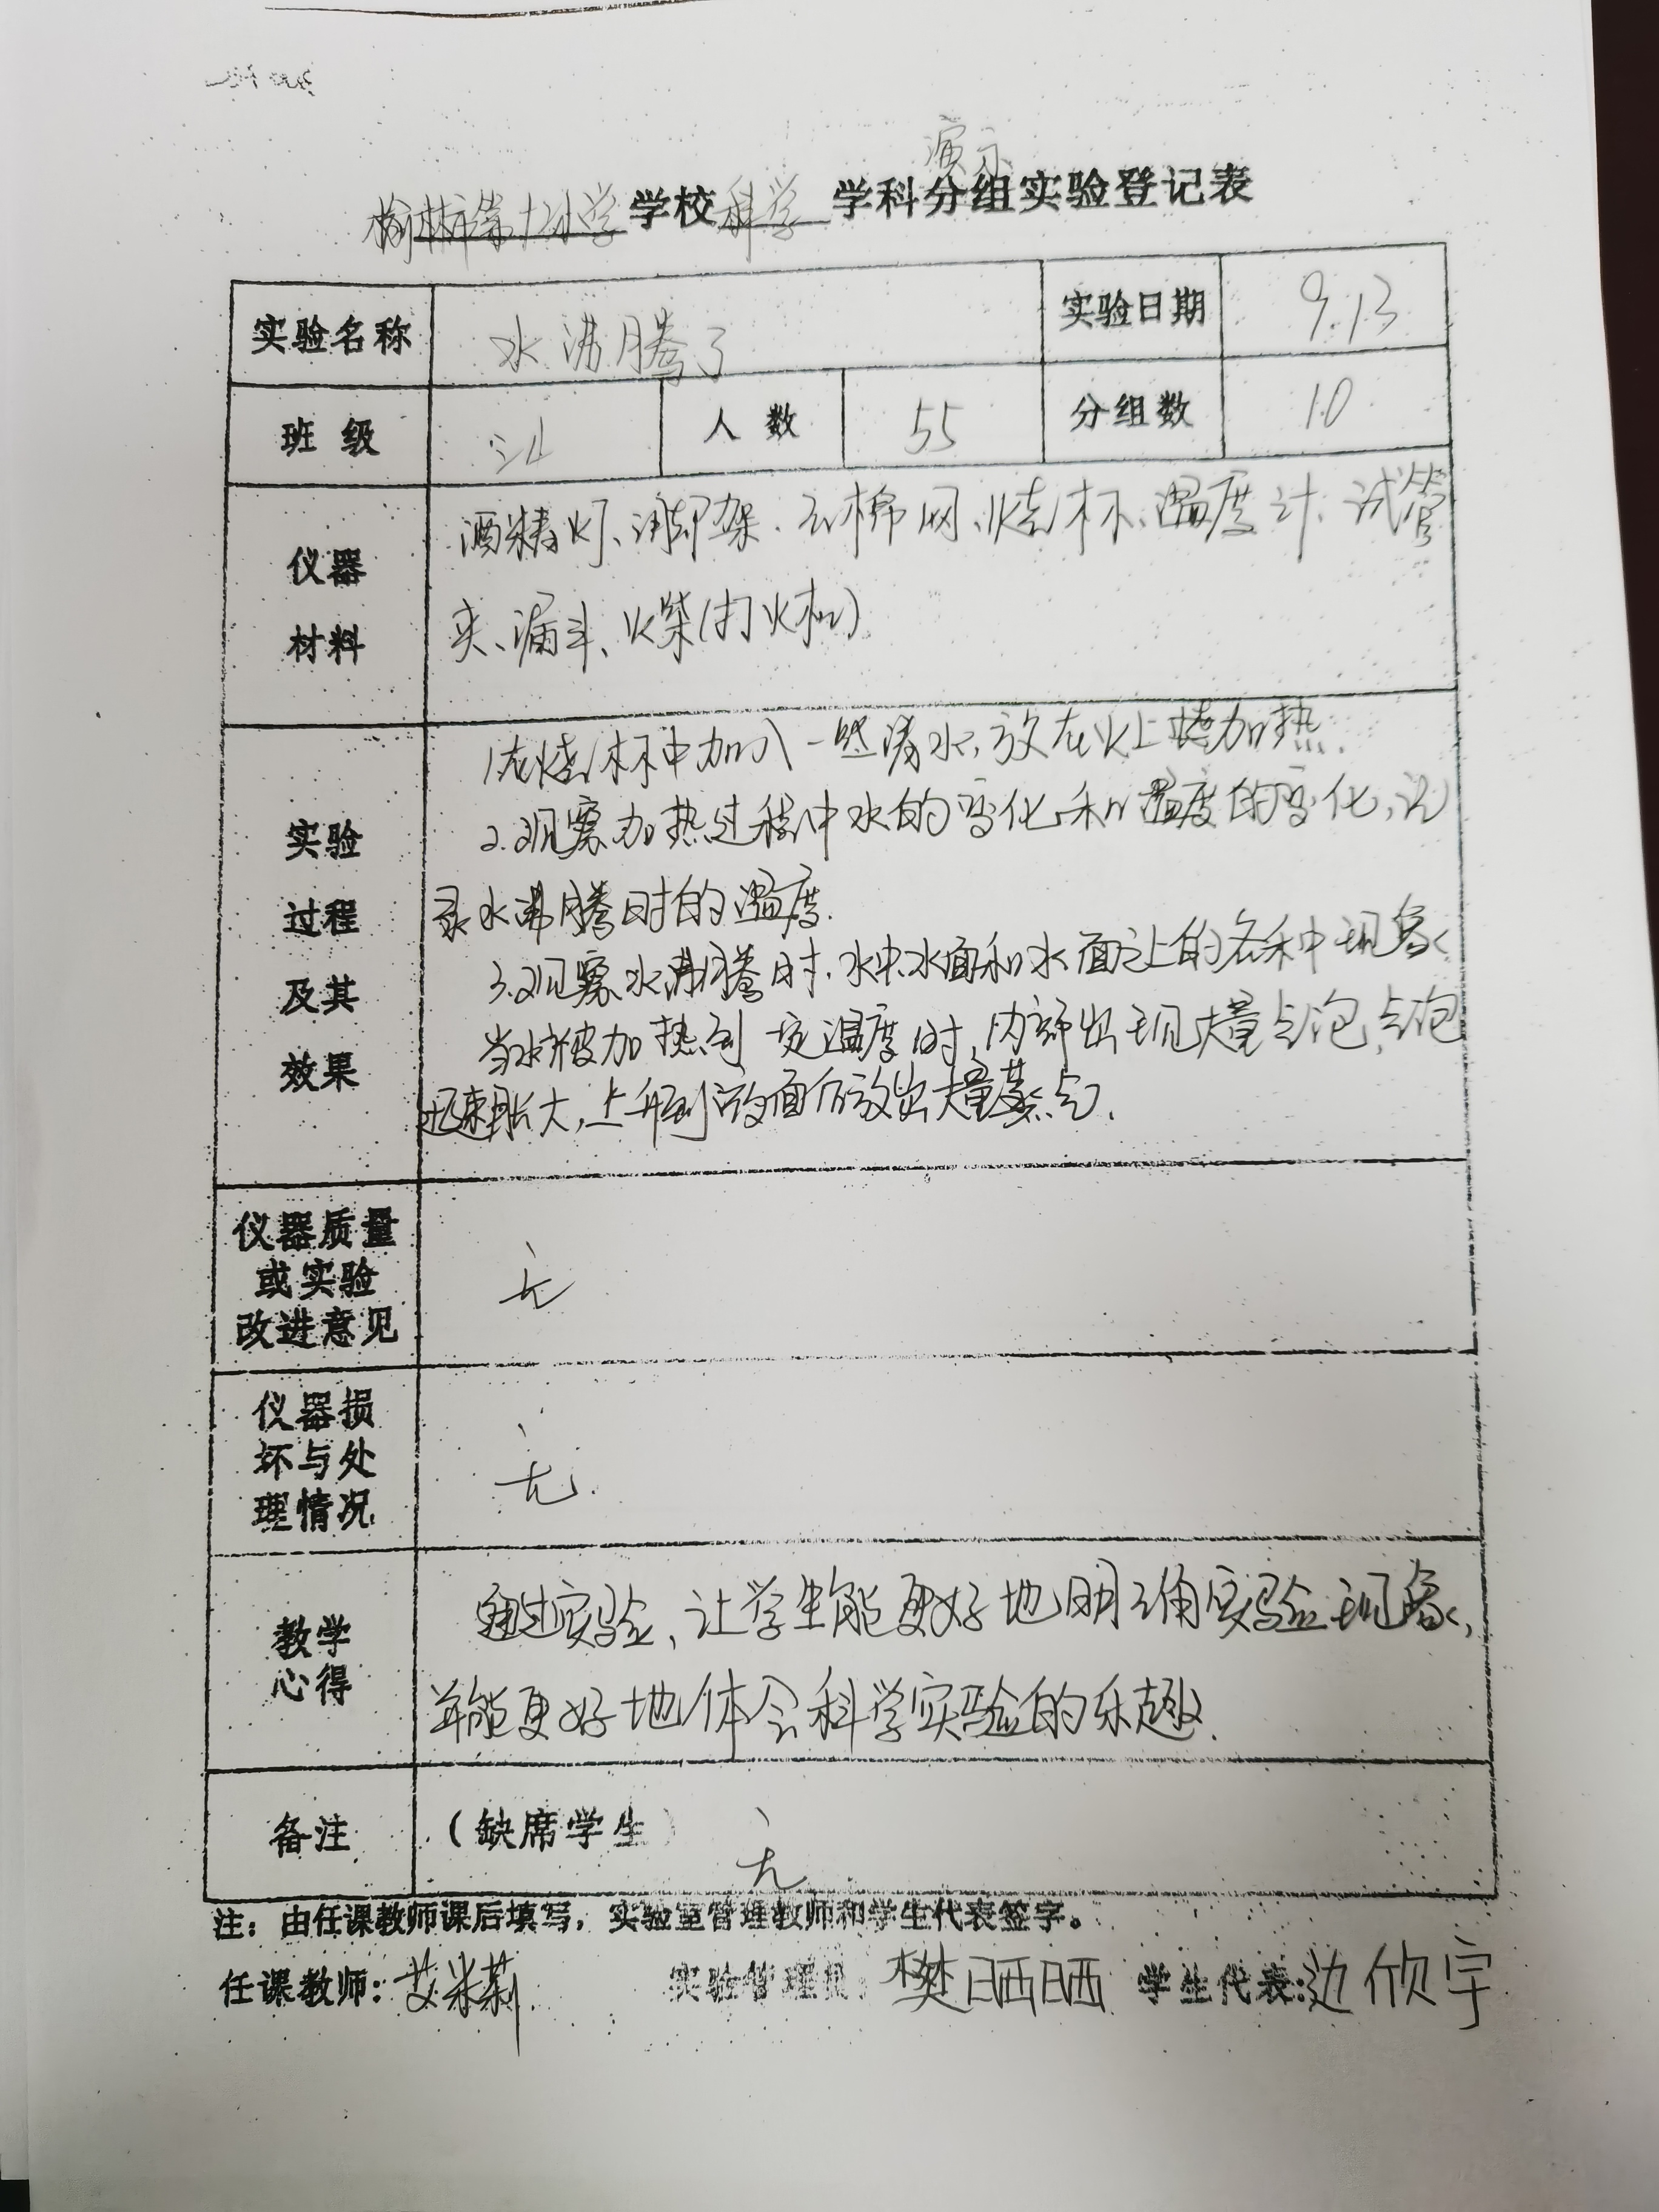 演示
榆林市第十二小学学校科学学科分组实验登记表
实验名称 水沸腾了 实验日期 9.13
班级 人数 55 分组数 10
仪器材料
酒精灯、三脚架、石棉网、烧杯、温度计、试管
夹、漏斗、火柴(打火机)
实验过程及其效果
1.在烧杯中加入一些清水,放在火上加热.
2.观察加热过程中水的变化和温度的变化,记
录水沸腾时的温度.
3.观察水沸腾时,水中、水面和水面之上的各种现象
当水被加热到一定温度时,内部出现大量气泡,气泡
迅速胀大,上升到液面后放出大量蒸气.
仪器质量
或实验
改进意见
无
仪器损
坏与处
理情况
无.
教学
心得
通过实验,让学生能更好地明确实验现象,
并能更好地体会科学实验的乐趣.
备注 (缺席学生)
无
注:由任课教师课后填写,实验室管理教师和学生代表签字。
任课教师:艾米莉 实验管理员:樊晒晒 学生代表:边欣宇